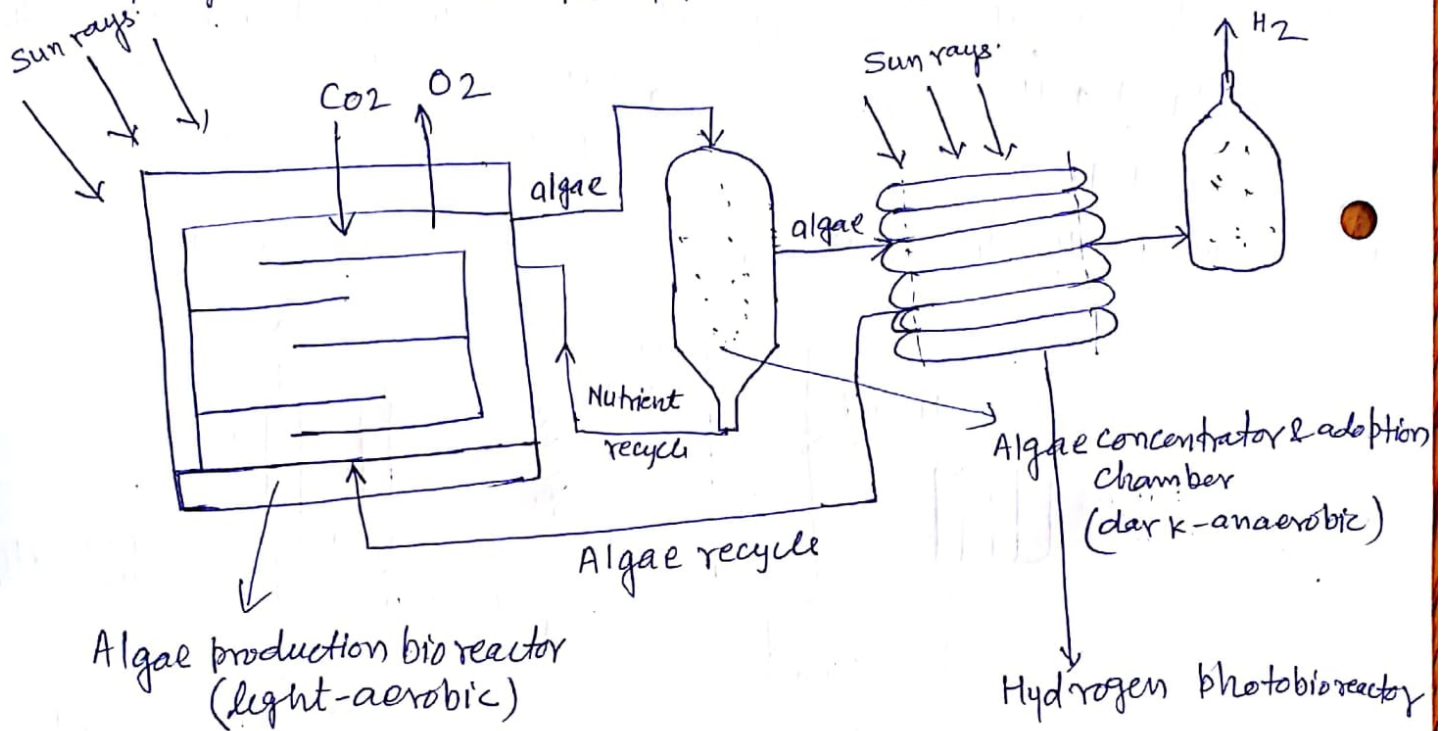 Sun rays.
CO2
O2
Sun rays.
H2
algae
algae
Nutrient
recycle
Algae concentrator & adoption
chamber
(dark-anaerobic)
Algae recycle
Algae production bioreactor
(light-aerobic)
Hydrogen photobioreactor